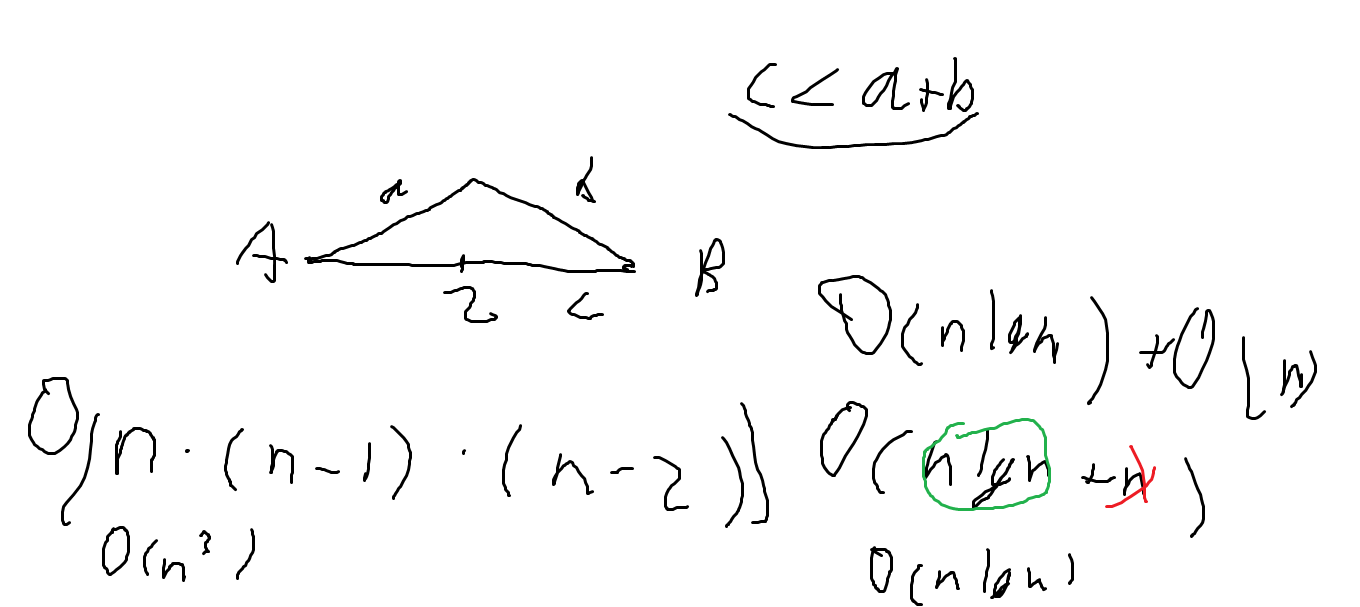 c < a+b
a b
A B
2 c
O(n lgn) + O(n)
O(n · (n-1) · (n-2)) O(n lgn + n)
O(n³) O(n lgn)